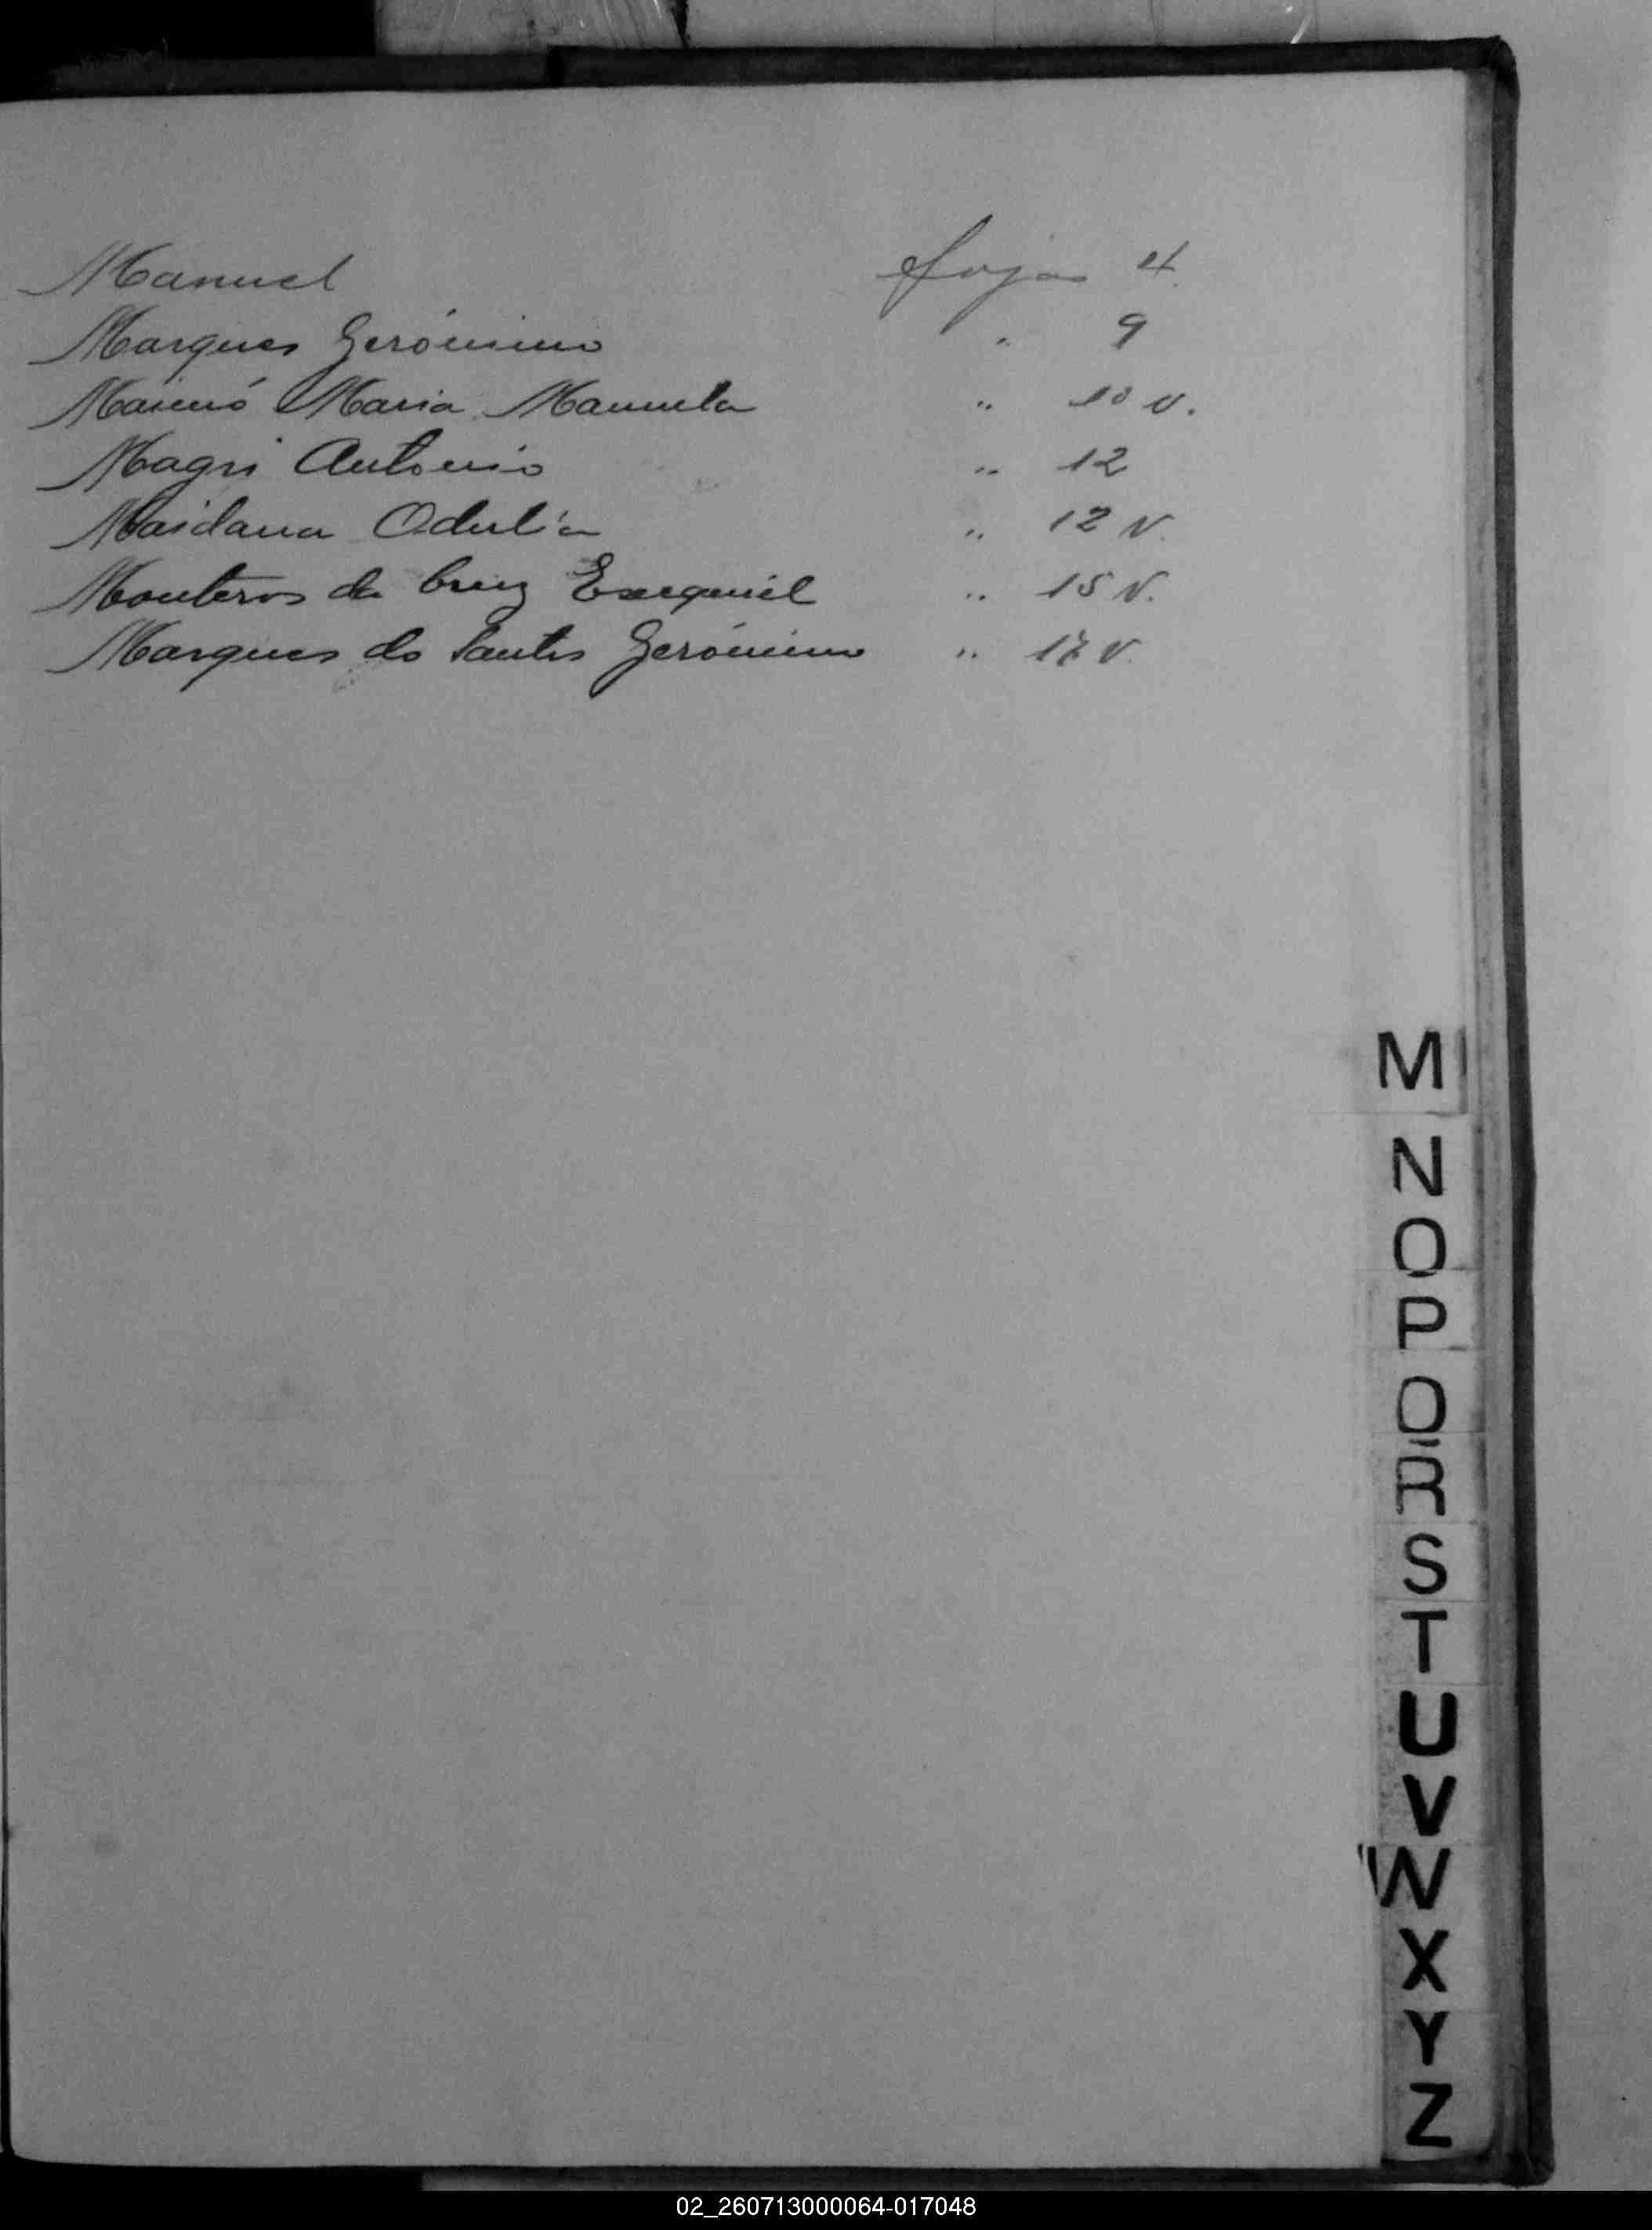 Manuel fojas 4.
Marques Gerónimo " 9
Maria Manuela " 10 v.
Magri Antonio " 12
Maidana Odulia " 12 v.
Monteros da Cruz Exequiel " 15 v.
Marques do Santos Gerónimo " 17 v.
M
N
O
P
Q
R
S
T
U
V
W
X
Y
Z
02_260713000064-017048